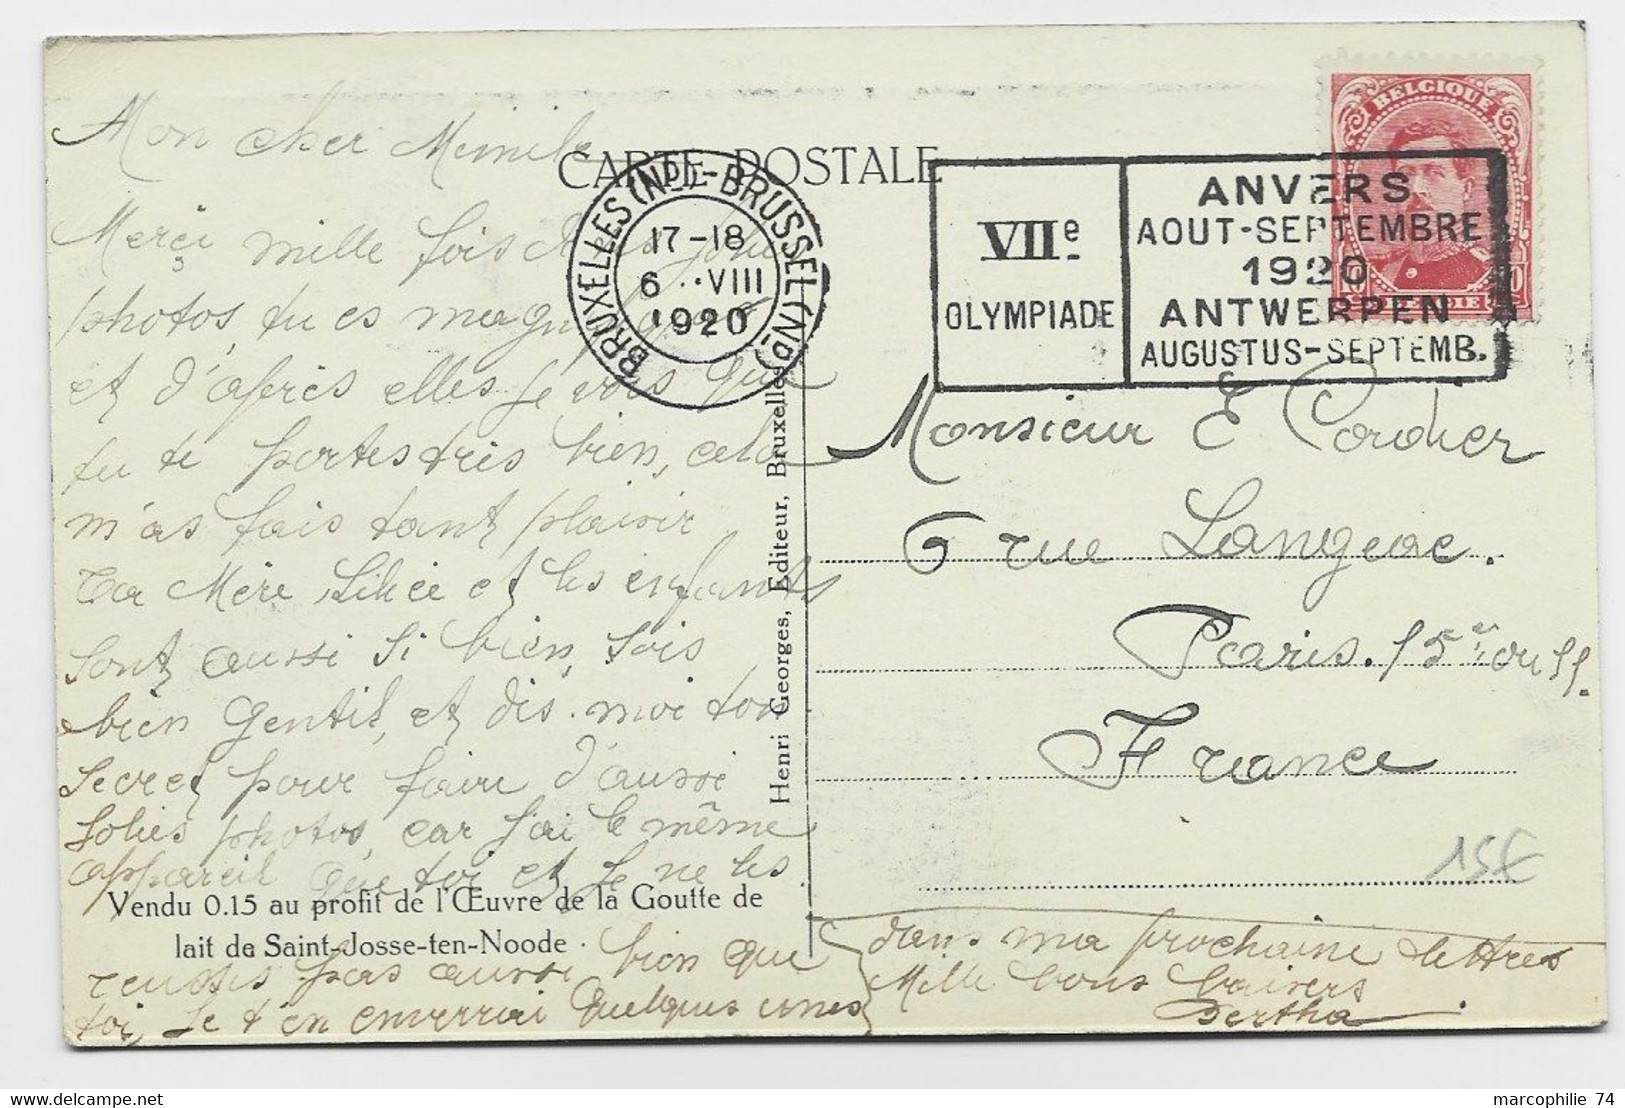 CARTE POSTALE
BRUXELLES (Nd) - BRUSSEL (Nd)
17-18
6 ··VIII
1920
VIIe
OLYMPIADE
ANVERS
AOUT-SEPTEMBRE
1920
ANTWERPEN
AUGUSTUS-SEPTEMB.
BELGIQUE
BELGIE
Mon cher Memile
Merçi mille fois de jolies
photos, tu es magnifique
et d'après elles je vois que
tu te portes très bien, cela
m'as fais tant plaisir
Ta Mère, et les enfants
sont aussi si bien, sois
bien gentil, et dis-moi ton
secret pour faire d'aussi
jolies photos, car j'ai le même
appareil que toi et je ne les
Vendu 0.15 au profit de l'Œuvre de la Goutte de
lait de Saint-Josse-ten-Noode
reussis pas aussi bien que
toi, je t'en enverrai quelques unes
dans ma prochaine lettres
Mille bons baisers
Bertha
Henri Georges, Editeur, Bruxelles
Monsieur E Cordier
6 rue Langeac.
Paris. 15er ou 11.
France
15€
marcophilie 74